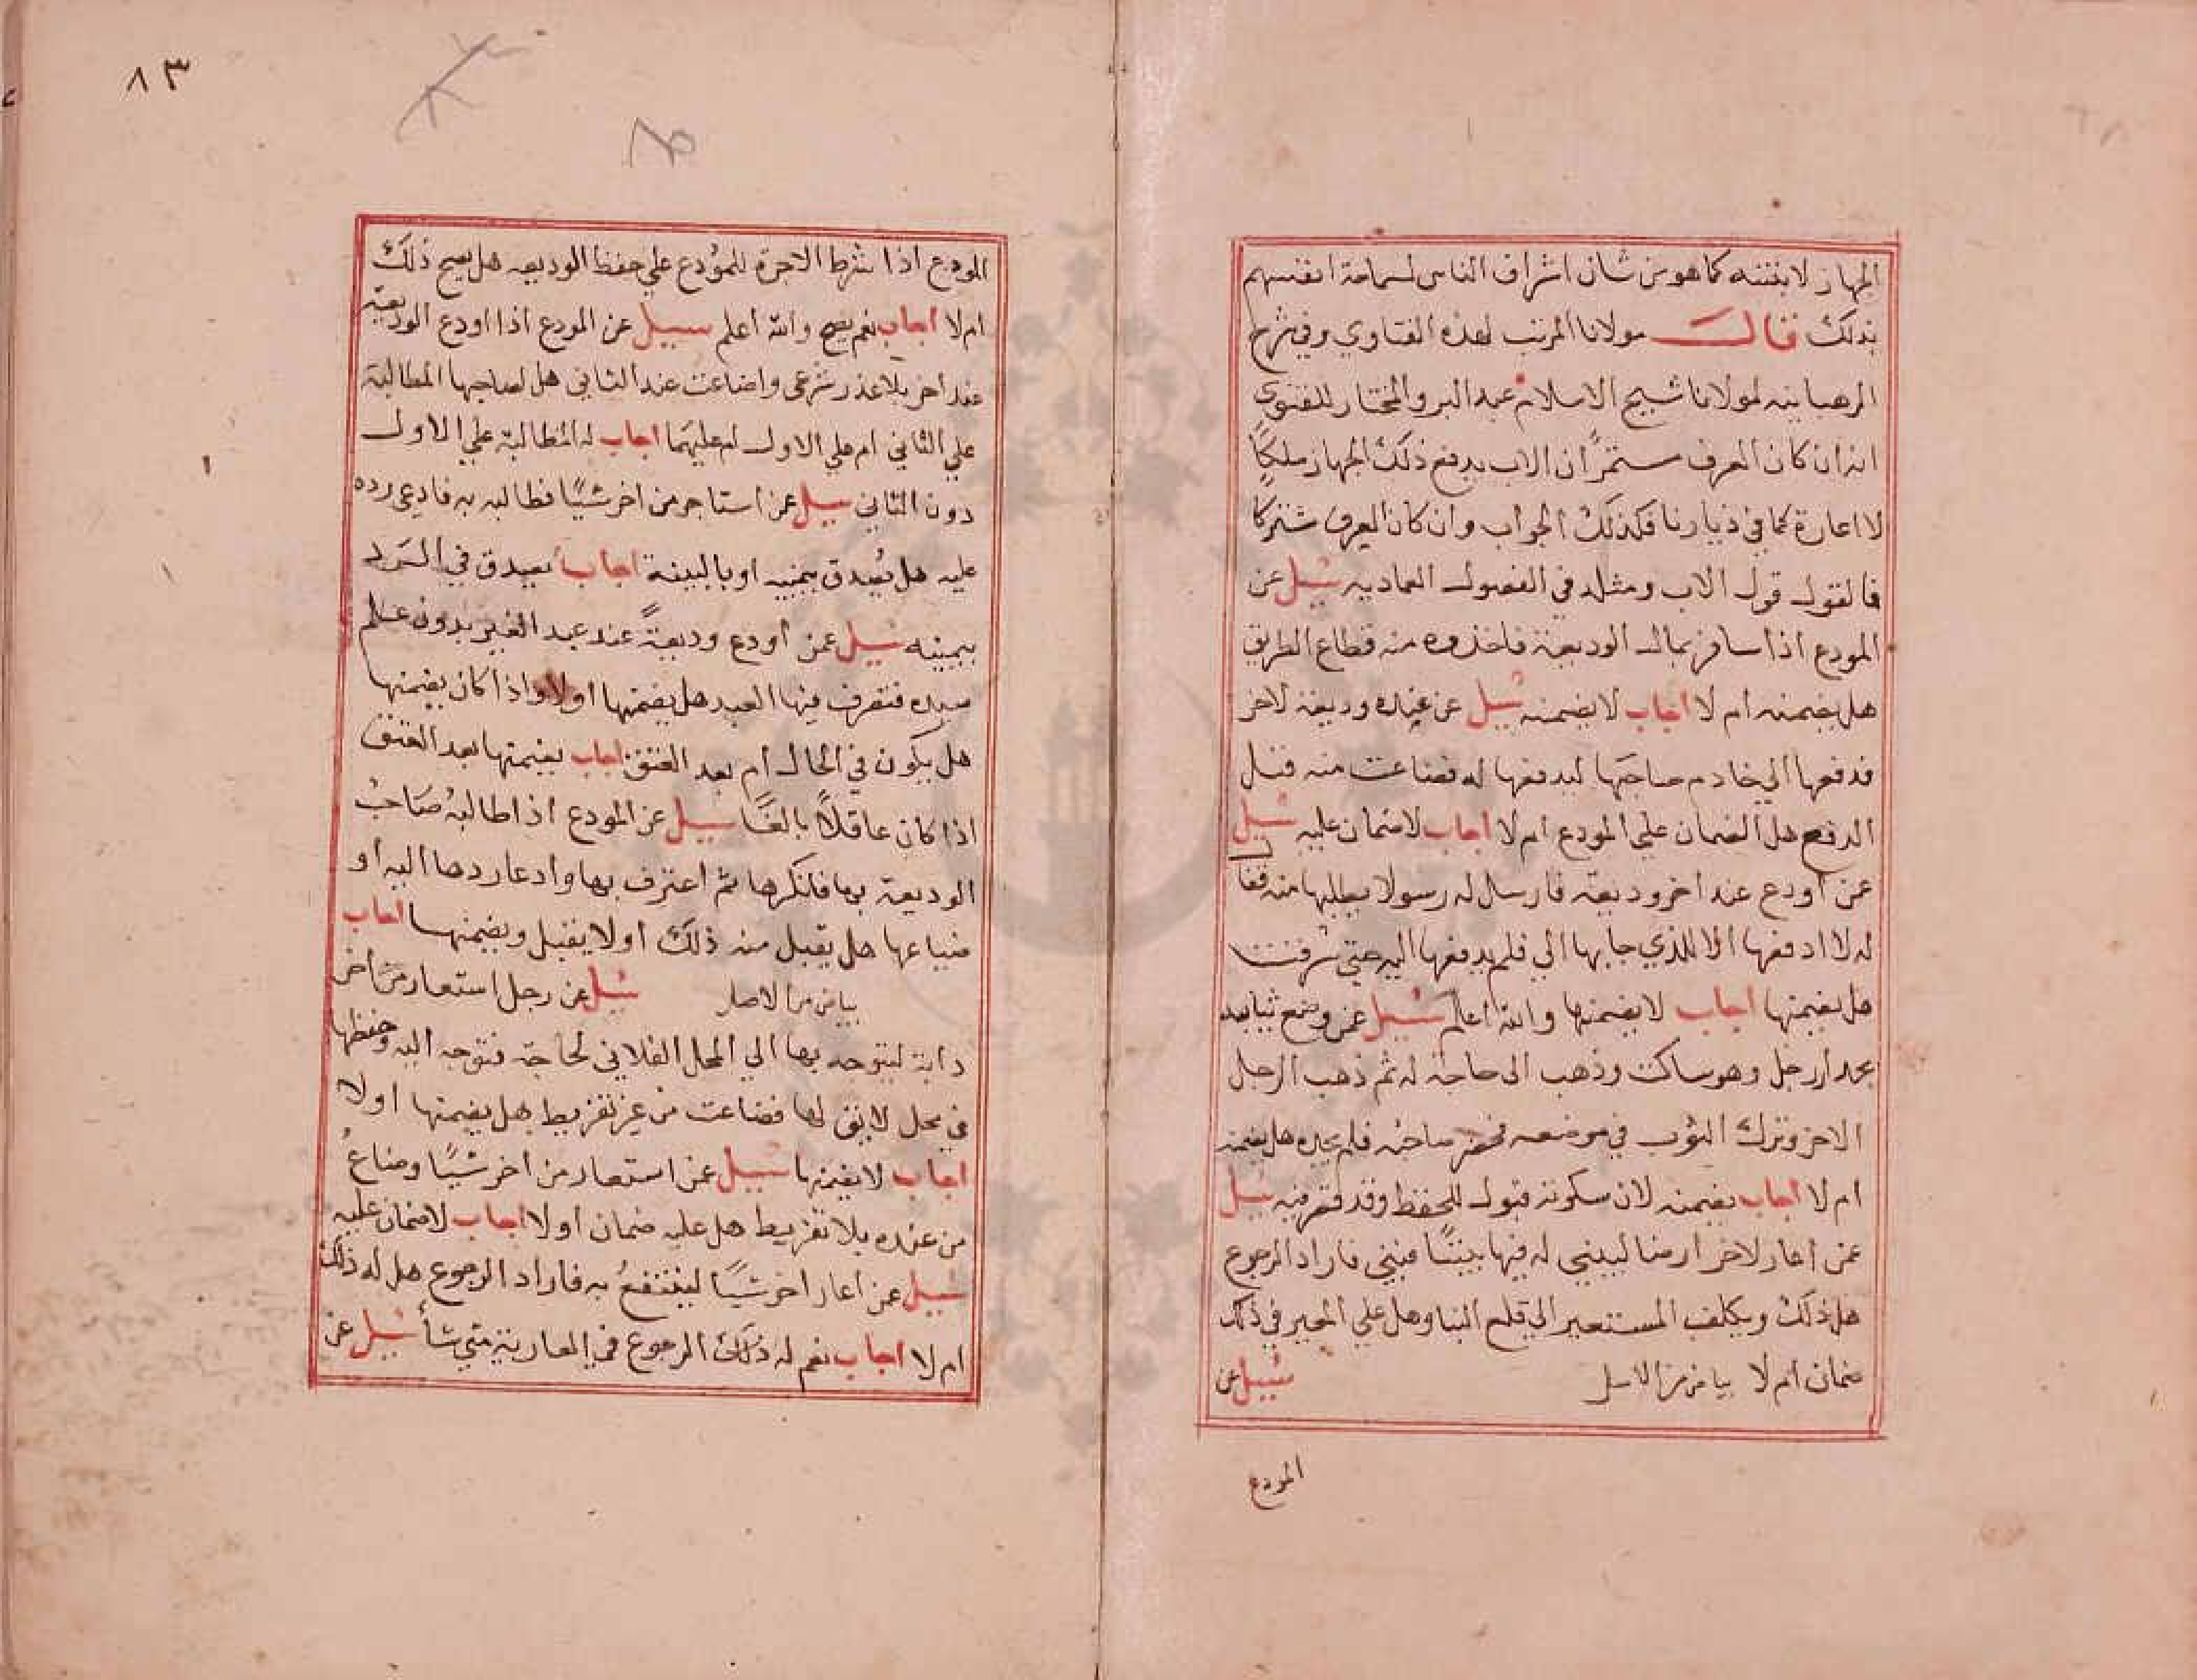 الجهاز لابنته كما هو من شان اشراف الناس لسماحة انفسهم
بذلك قال مولانا المرتب لهذه الفتاوي وفي شرح
الوهبانيه لمولانا شيخ الاسلام عبد البر والمختار للفتوي
انه ان كان العرف مستمرًا ان الاب يدفع ذلك الجهاز ملكًا
لا اعارة كما في ديارنا فكذلك الجواب وان كان العرف مشتركا
فالقول قول الاب ومثله في الفصول العماديه سيل عن
المودع اذا سافر بمال الوديعة فاخذوه منه قطاع الطريق
هل يضمنه ام لا اجاب لا يضمنه سيل عن عنده وديعة لاخر
فدفعها الي خادم صاحبها ليدفعها له فضاعت منه قبل
الدفع هل الضمان علي المودع ام لا اجاب لا ضمان عليه سيل
عن أودع عند اخر وديعة فارسال له رسولا يطلبها منه فقال
له لا ادفعها الا للذي جا بها الي فلم يدفعها اليه حتي سرقت
هل يضمنها اجاب لا يضمنها والله اعلم سيل عن وضع ثيابه
بجدار رجل وهو ساكت وذهب الى حاجة له ثم ذهب الرجل
الاخر وترك الثوب في موضعه فحضر صاحبه فلم يجده هل يضمنه
ام لا اجاب يضمنه لان سكوته قبول للحفظ وقد قصر فيه سيل
عمن اعار لاخر ارضا ليبني له فيها بيتًا فبني فاراد الرجوع
هل ذلك ويكلف المستعير الي قلع البنا وهل علي المعير في ذلك
ضمان ام لا بياض من الاصل سيل عن
المودع
٨٣
المودع اذا شرط الاجرة للمودع علي حفظ الوديعه هل يصح ذلك
ام لا اجاب نعم يصح والله اعلم سيل عن المودع اذا اودع الوديعة
عند اخر بلا عذر شرعي واضاعت عند الثاني هل لصاحبها المطالبة
علي الثاني ام علي الاول ام عليهما اجاب له المطالبة علي الاول
دون الثاني سيل عن استاجر من اخر شيًا فطالبه به فادعي رده
عليه هل يُصدق بيمنيه او بالبينة اجاب يصدق في الرد
بيمينه سيل عمن أودع وديعةً عند عبد الغير بدون علم
سيده فتصرف فيها العبد هل يضمنها اولا واذا كان يضمنها
هل يكون في الحال أم بعد العتق اجاب يضمنها بعد العتق
اذا كان عاقلًا بالغًا سيل عن المودع اذا طالبه صاحب
الوديعة بها فانكرها ثم اعترف بها وادعا ردها اليه أو
ضياعها هل يقبل منه ذلك اولا يقبل ويضمنها اجاب
بياض من الاصل سيل عن رجل استعار من آخر
دابة ليتوجه بها الي المحل الفلاني لحاجة فتوجه اليه وحفظها
في محل لايق لها فضاعت من غير تفريط هل يضمنها اولا
اجاب لا يضمنها سيل عمن استعار من اخر شيًا وضاع
من عنده بلا تفريط هل عليه ضمان اولا اجاب لا ضمان عليه
سيل عن اعار اخر شيًا لينتفع به فاراد الرجوع هل له ذلك
ام لا اجاب نعم له ذلك الرجوع في العارية متي شأ سيل عن